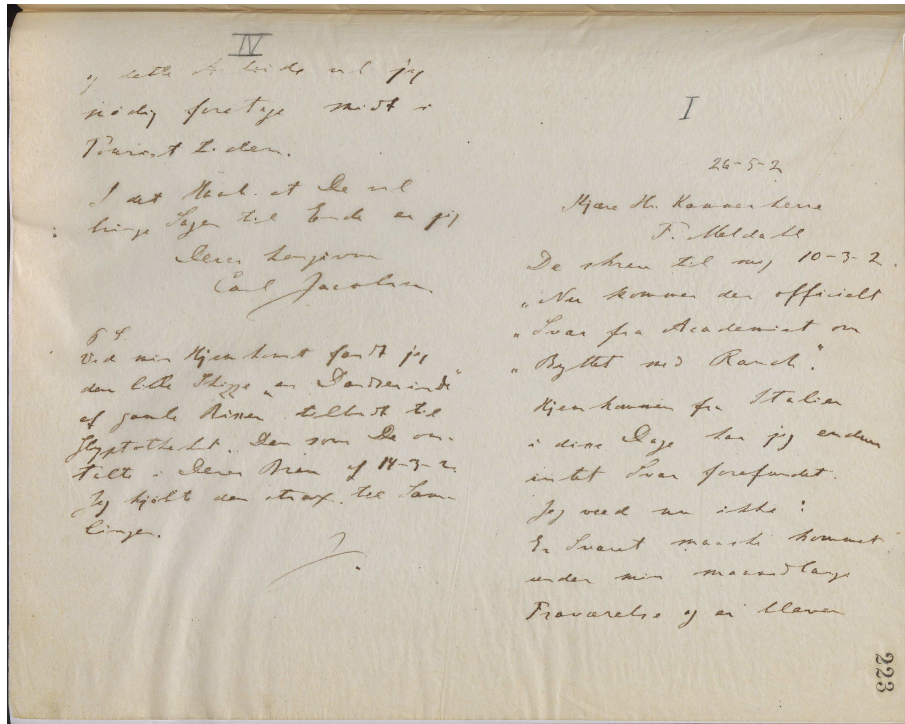 IV
og dette Arbeide vil jeg
nødig foretage midt i
Tourist tiden.
I det Haab at De vil
bringe Sagen til Ende er jeg
Deres hengivne
Carl Jacobsen
Ved min Hjemkomst fandt jeg
den lille Skizze "en Danserinde"
af gamle Rissen tilbudt til
Glyptotheket. Den som De om-
talte i Deres Brev af 14-3-2.
Jeg kjøbt den strax til Sam-
lingen.
I
26-5-2
Kjære Hr. Kammerherre
F. Meldahl
De skrev til mig 10-3-2.
"Nu kommer den officielt
"Svar fra Academiet om
"Byttet med Rauch".
Hjemkommen fra Italien
i disse Dage har jeg endnu
intet Svar forefundet.
Jeg veed nu ikke:
Er Svaret maaske kommet
under min maanedlange
Fraværelse og ei bleven
223